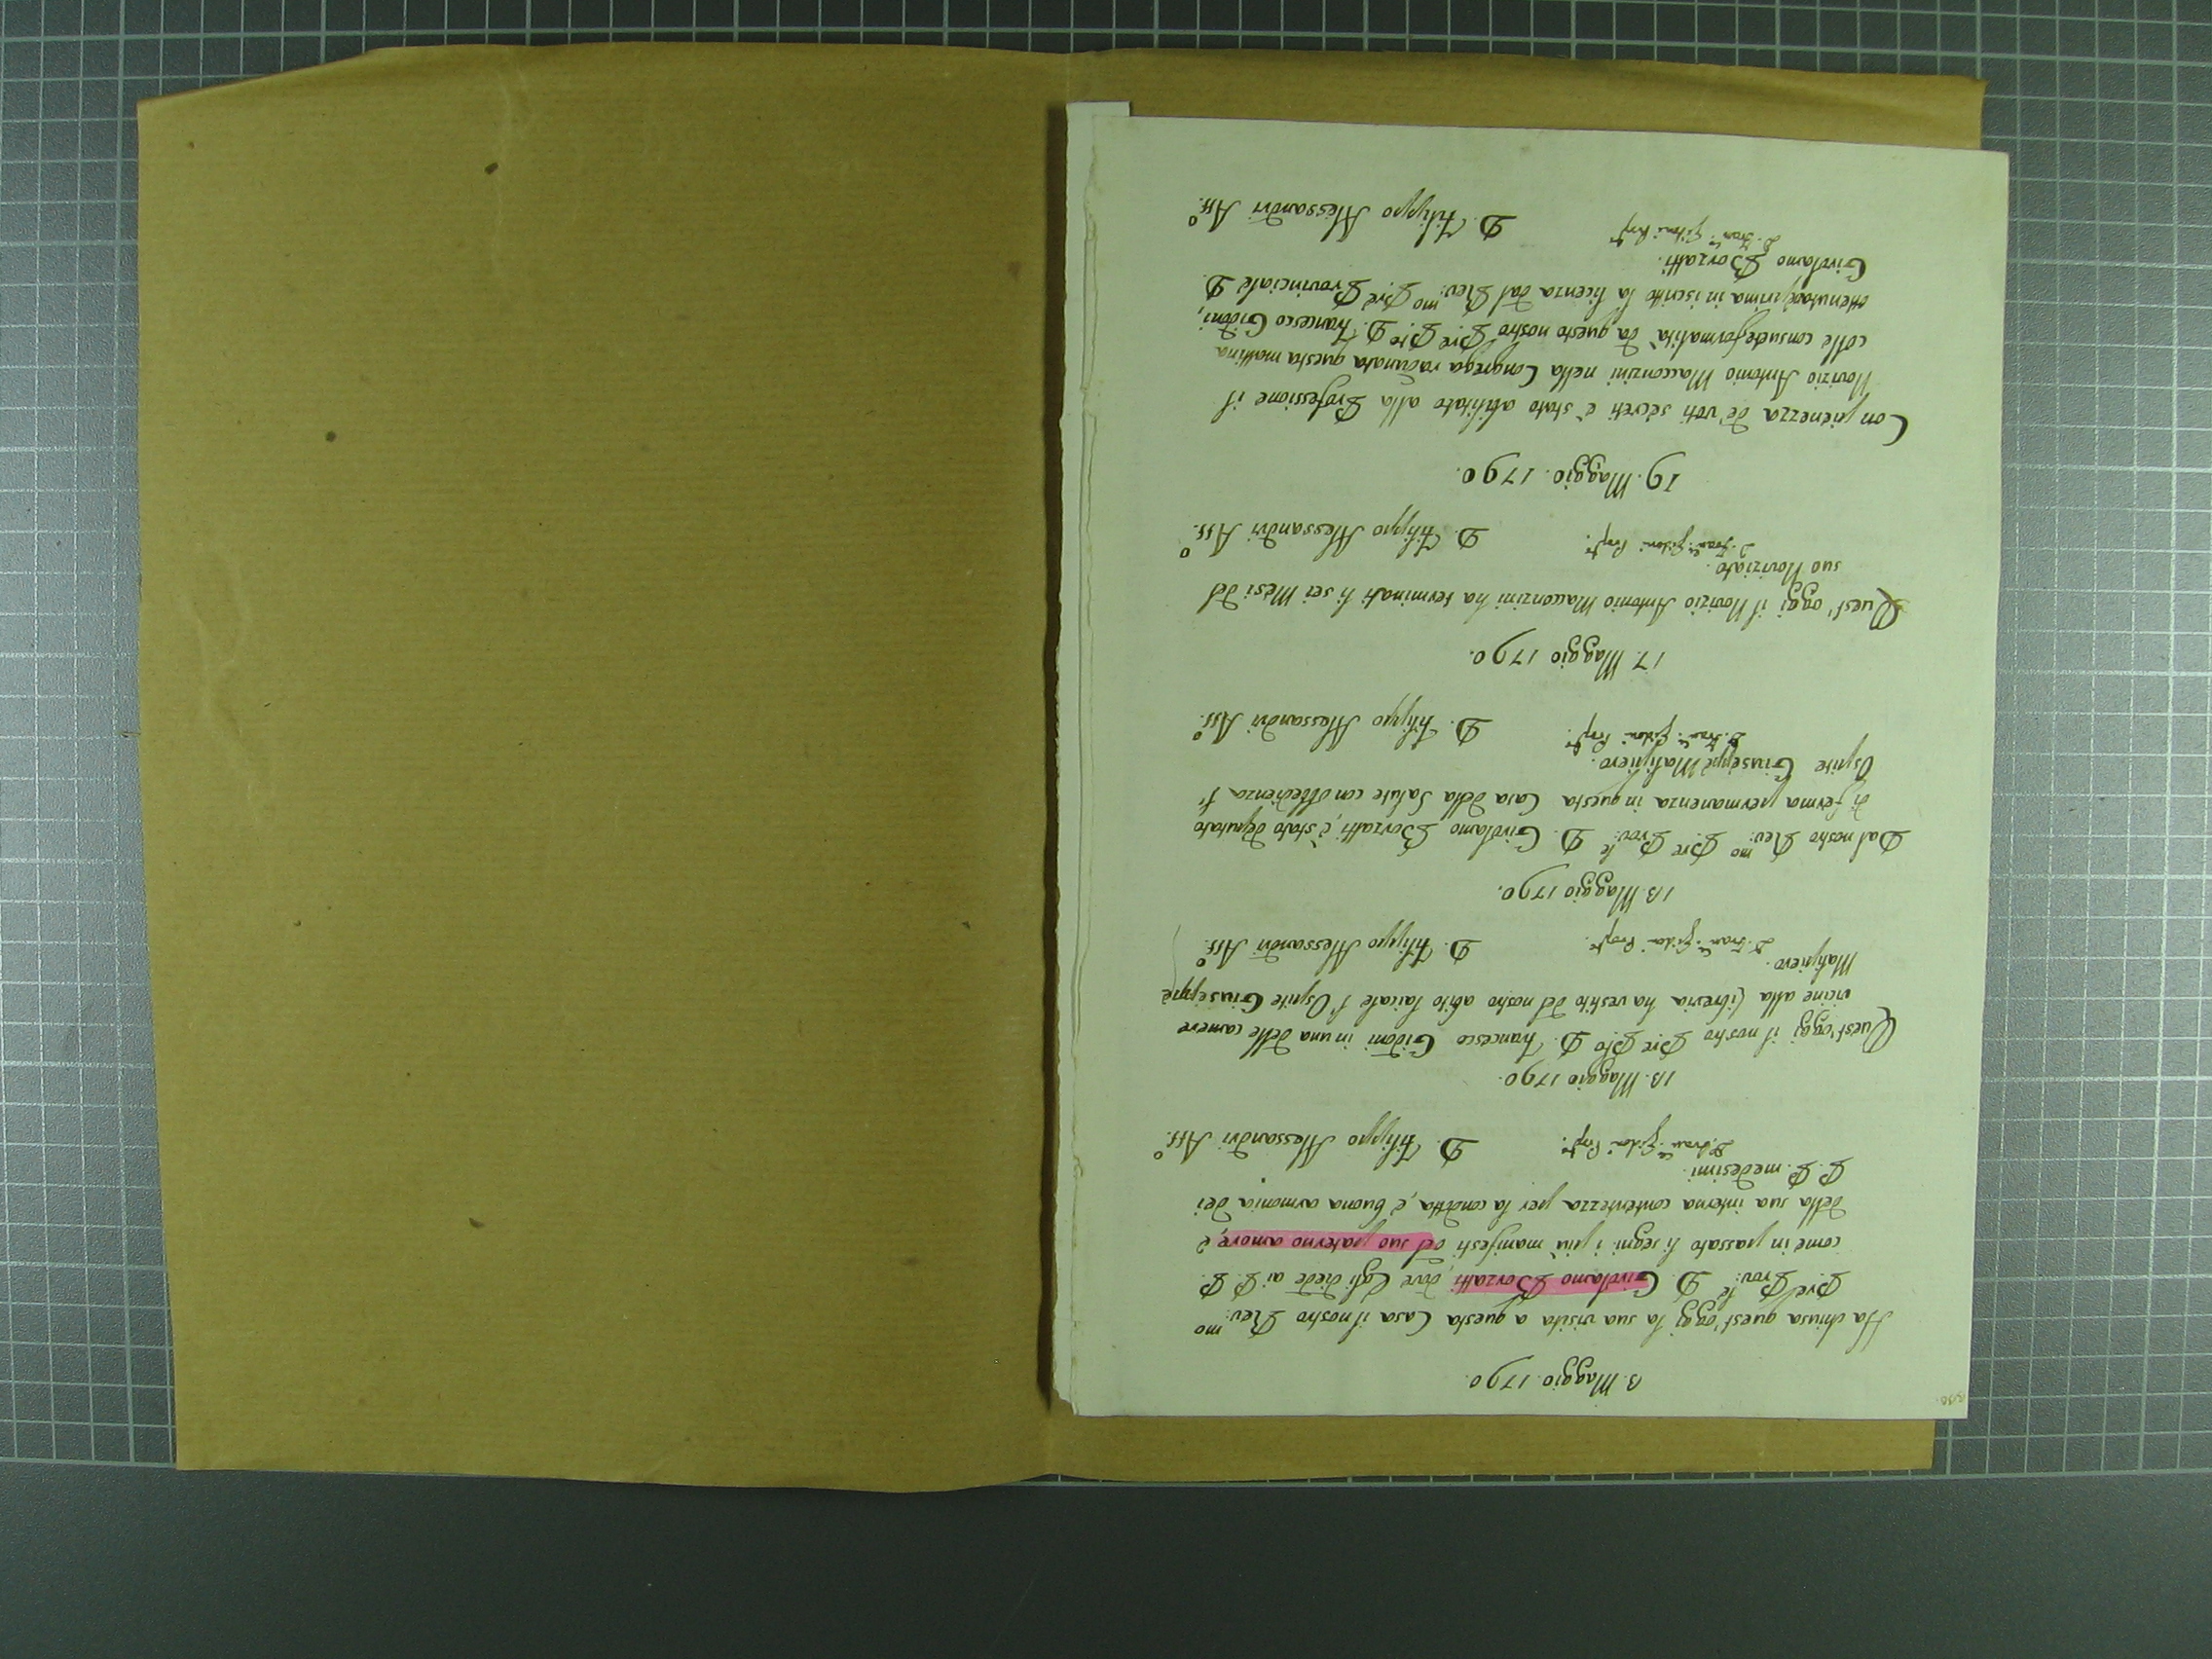 3. Maggio. 1790.
Ha chiusa quest'oggi la sua visita a questa Casa il nostro Rev:mo
Pre Prov:le D. Girolamo Borzatti, dove Egli diede ai P. P.
come in passato li segni i più manifesti del suo paterno amore, e
della sua interna contentezza per la condotta, e buona armonia dei
P. P. medesimi.
D. Fran:co Gidoni Prep.to D. Filippo Alessandri Att.o
13. Maggio 1790.
Quest'oggi il nostro Pre Pto D. Francesco Gidoni in una delle camere
vicine alla Libreria ha vestito del nostro abito laicale l'Ospite Giuseppe
Malipiero.
D. Fran:co Gidoni Prep.to D. Filippo Alessandri Att.o
13. Maggio 1790.
Dal nostro Rev:mo Pre Prov:le D. Girolamo Borzatti, è stato deputato
di ferma permanenza in questa Casa della Salute con obbedienza l'
Ospite Giuseppe Malipiero.
D. Fran:co Gidoni Prep.to D. Filippo Alessandri Att.o
17. Maggio 1790.
Quest'oggi il Novizio Antonio Macconzini ha terminati li sei Mesi del
suo Noviziato.
D. Fran:co Gidoni Prep.to D. Filippo Alessandri Att.o
19. Maggio. 1790.
Con pienezza de voti secreti è stato abilitato alla Professione il
Novizio Antonio Macconzini nella Congrega radunata questa mattina
colle consuete formalità da questo nostro Pre Pto D. Francesco Gidoni,
ottenuta prima in iscritto la licenza dal Rev:mo Pre Provinciale D.
Girolamo Borzatti.
D. Fran:co Gidoni Prep.to D. Filippo Alessandri Att.o